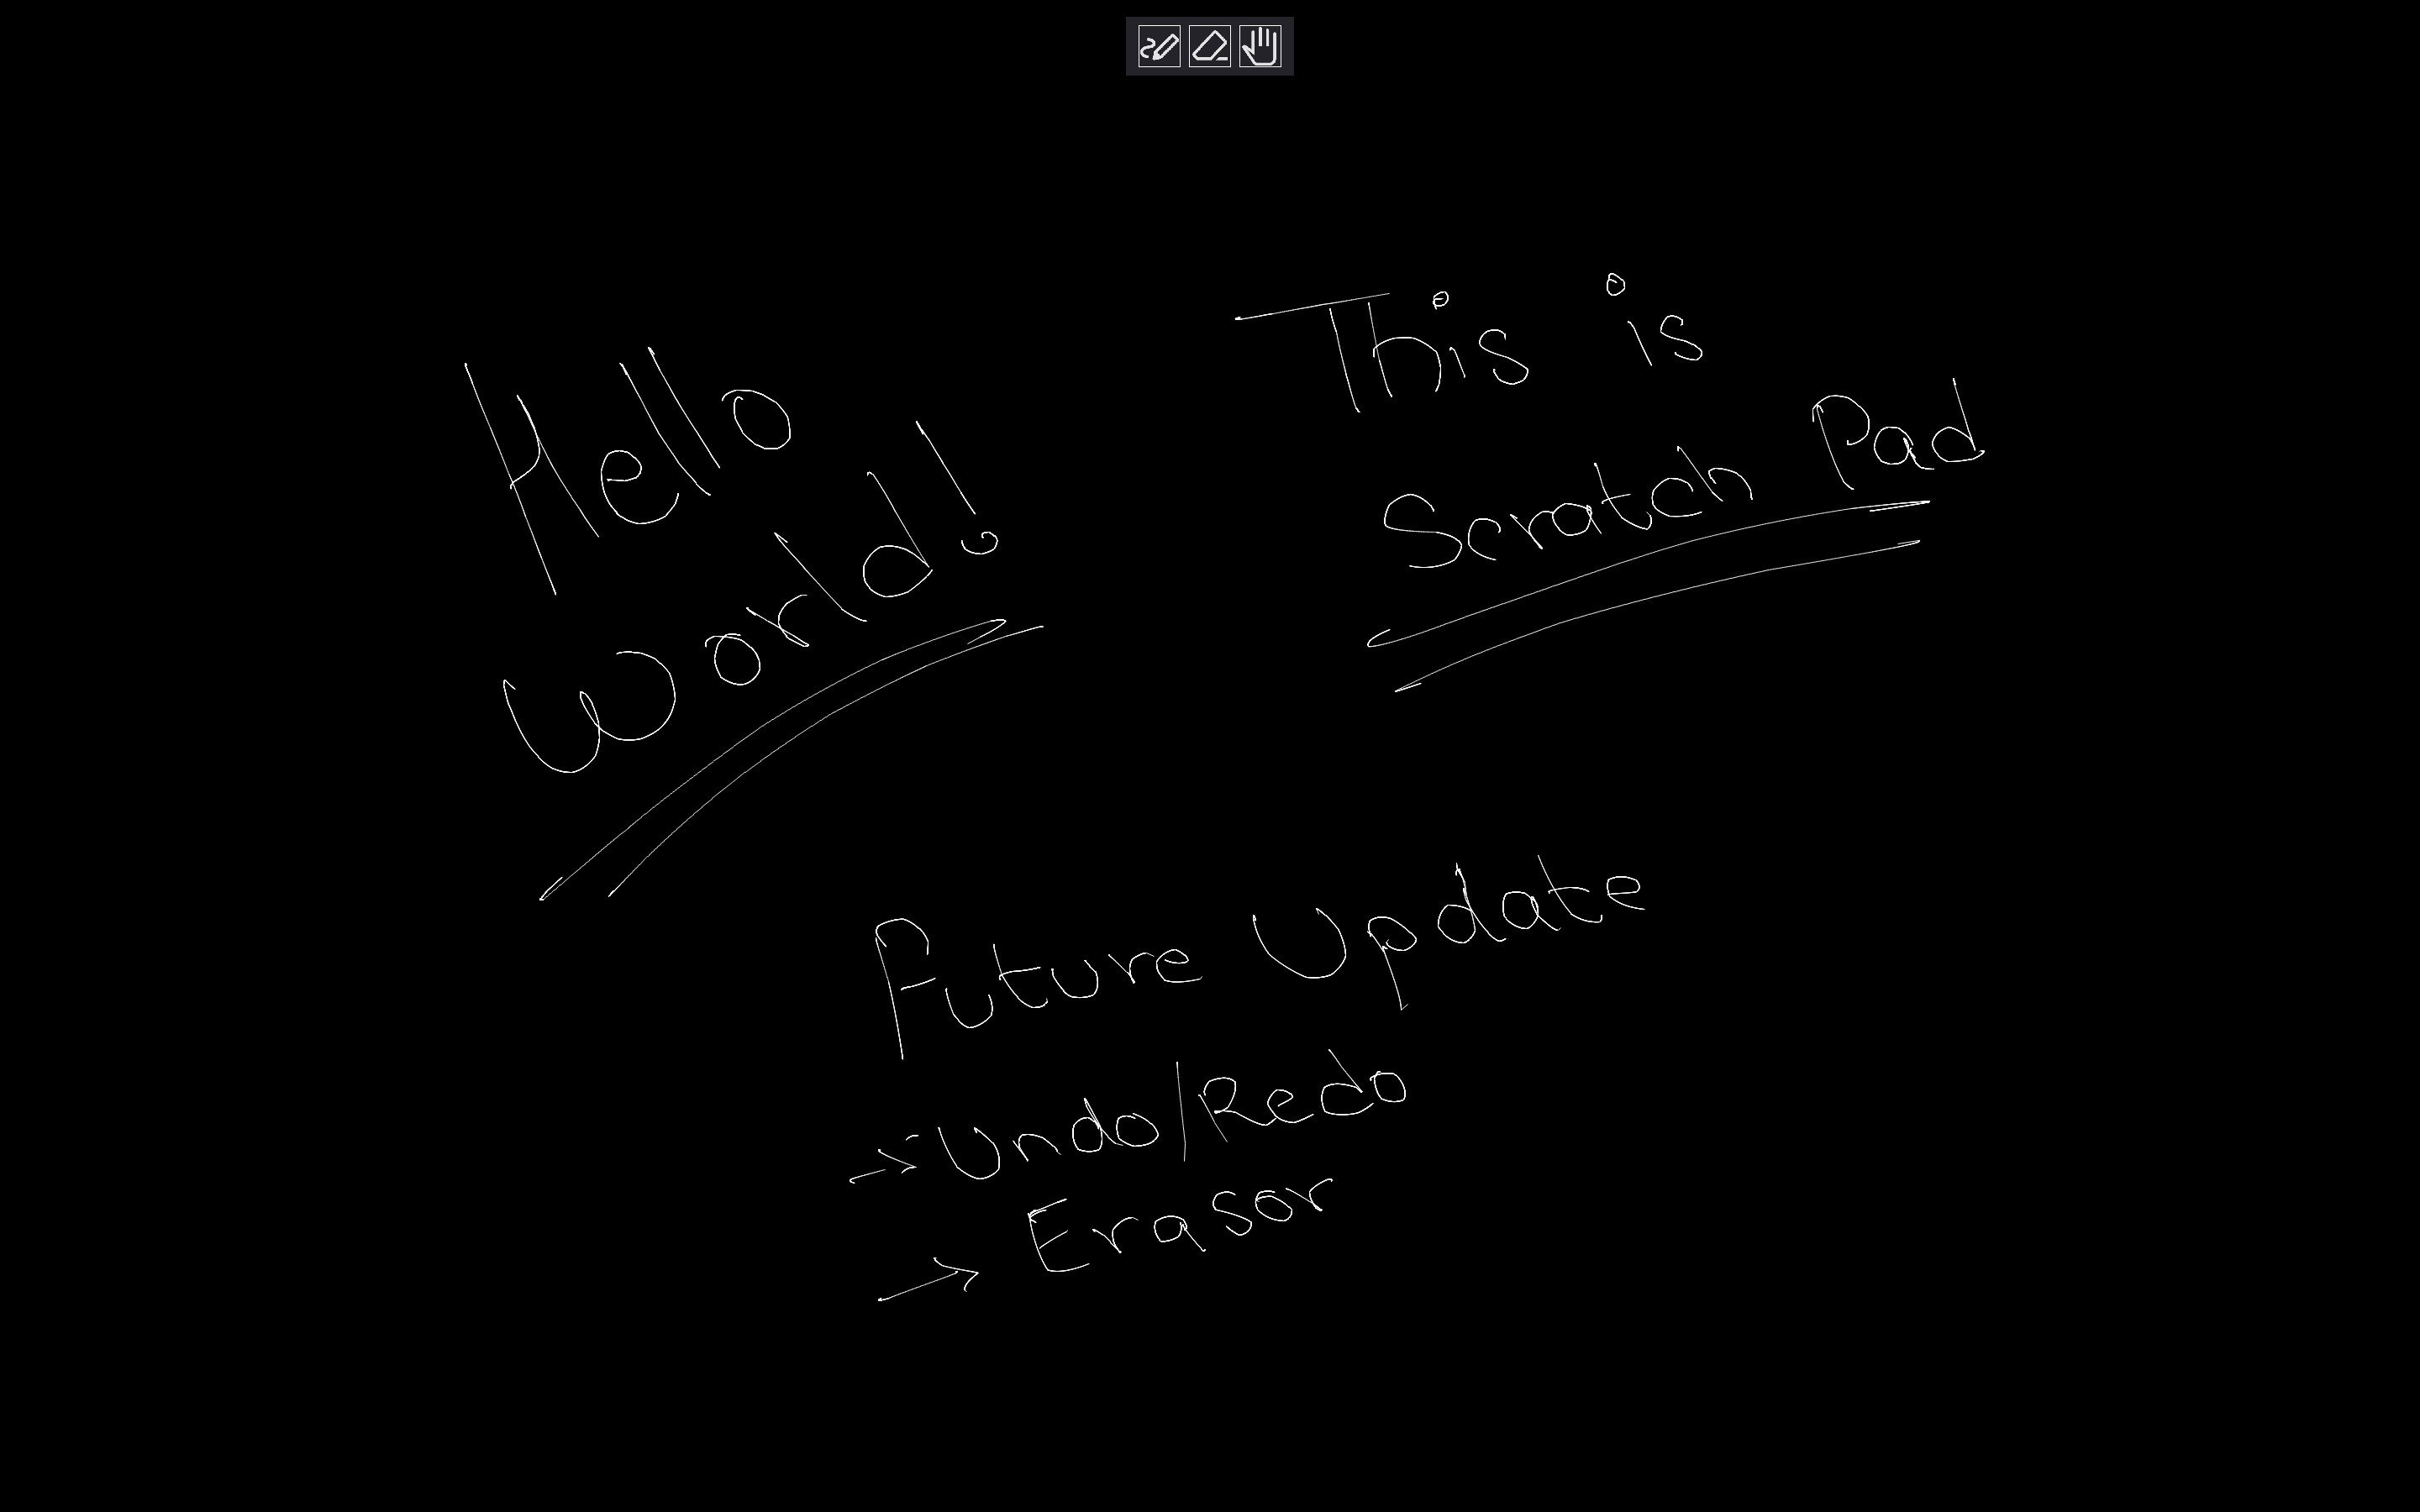 Hello
World!
This is
Scratch Pad
Future Update
→ Undo/Redo
→ Erasor